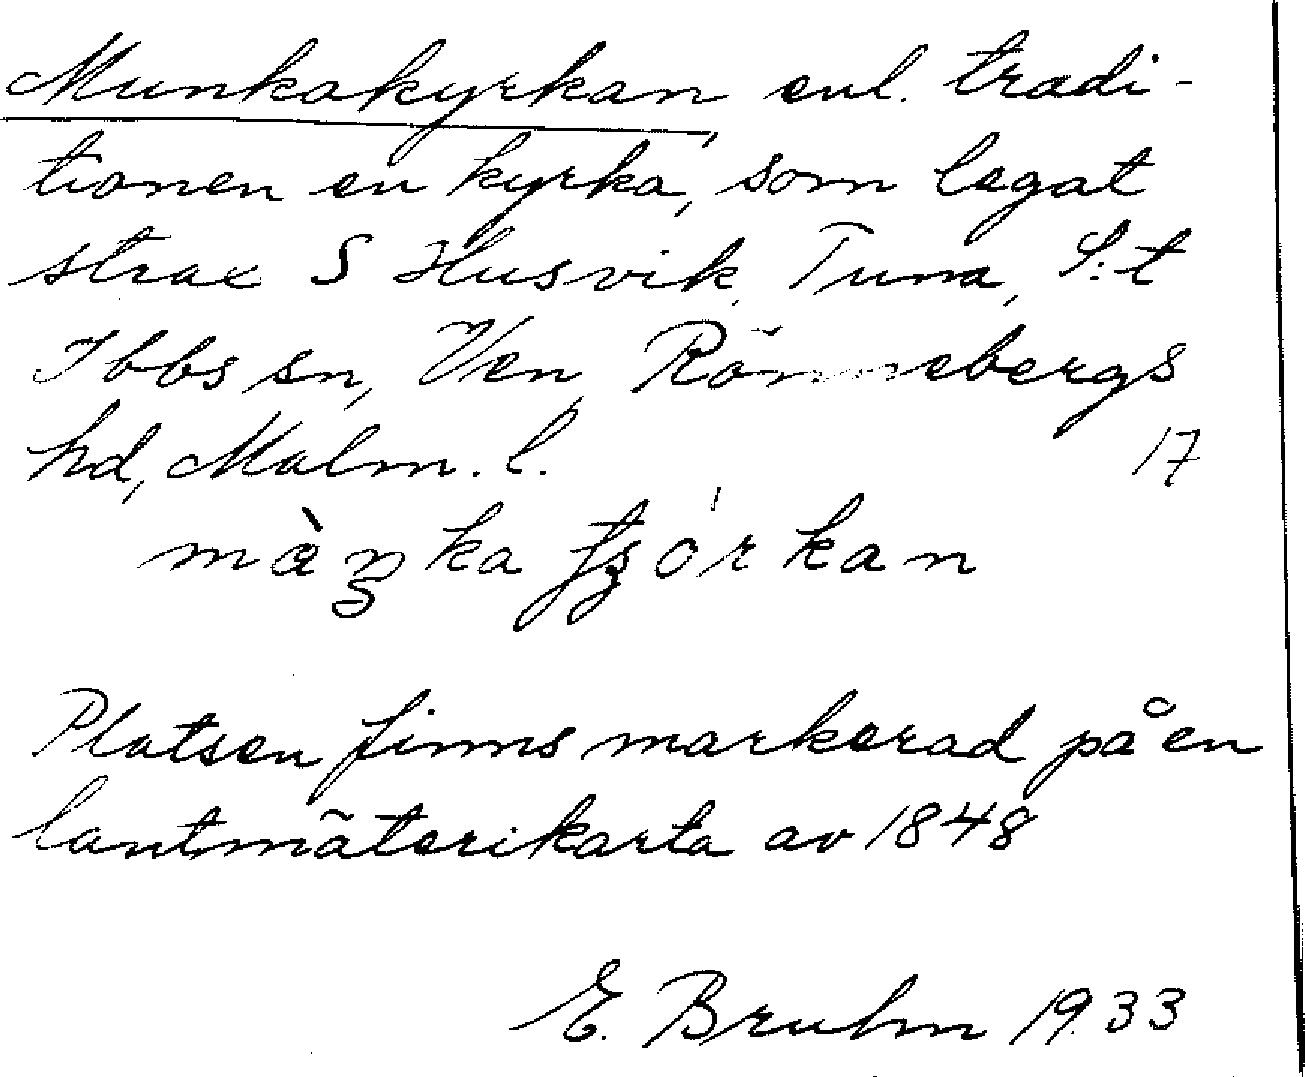 Munkakyrkan, enl. tradi-
tionen en kyrka, som legat
strax S Husvik, Tuna, S:t
Ibbs sn, Ven, Rönnebergs
hd, Malm. l. 17
Platsen finns markerad på en
lantmäterikarta av 1848
E. Bruhn 1933